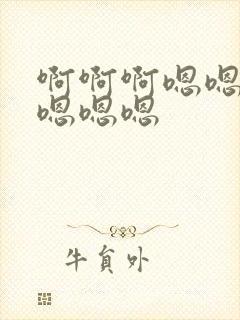 啊啊啊嗯嗯
嗯嗯嗯
牛員外